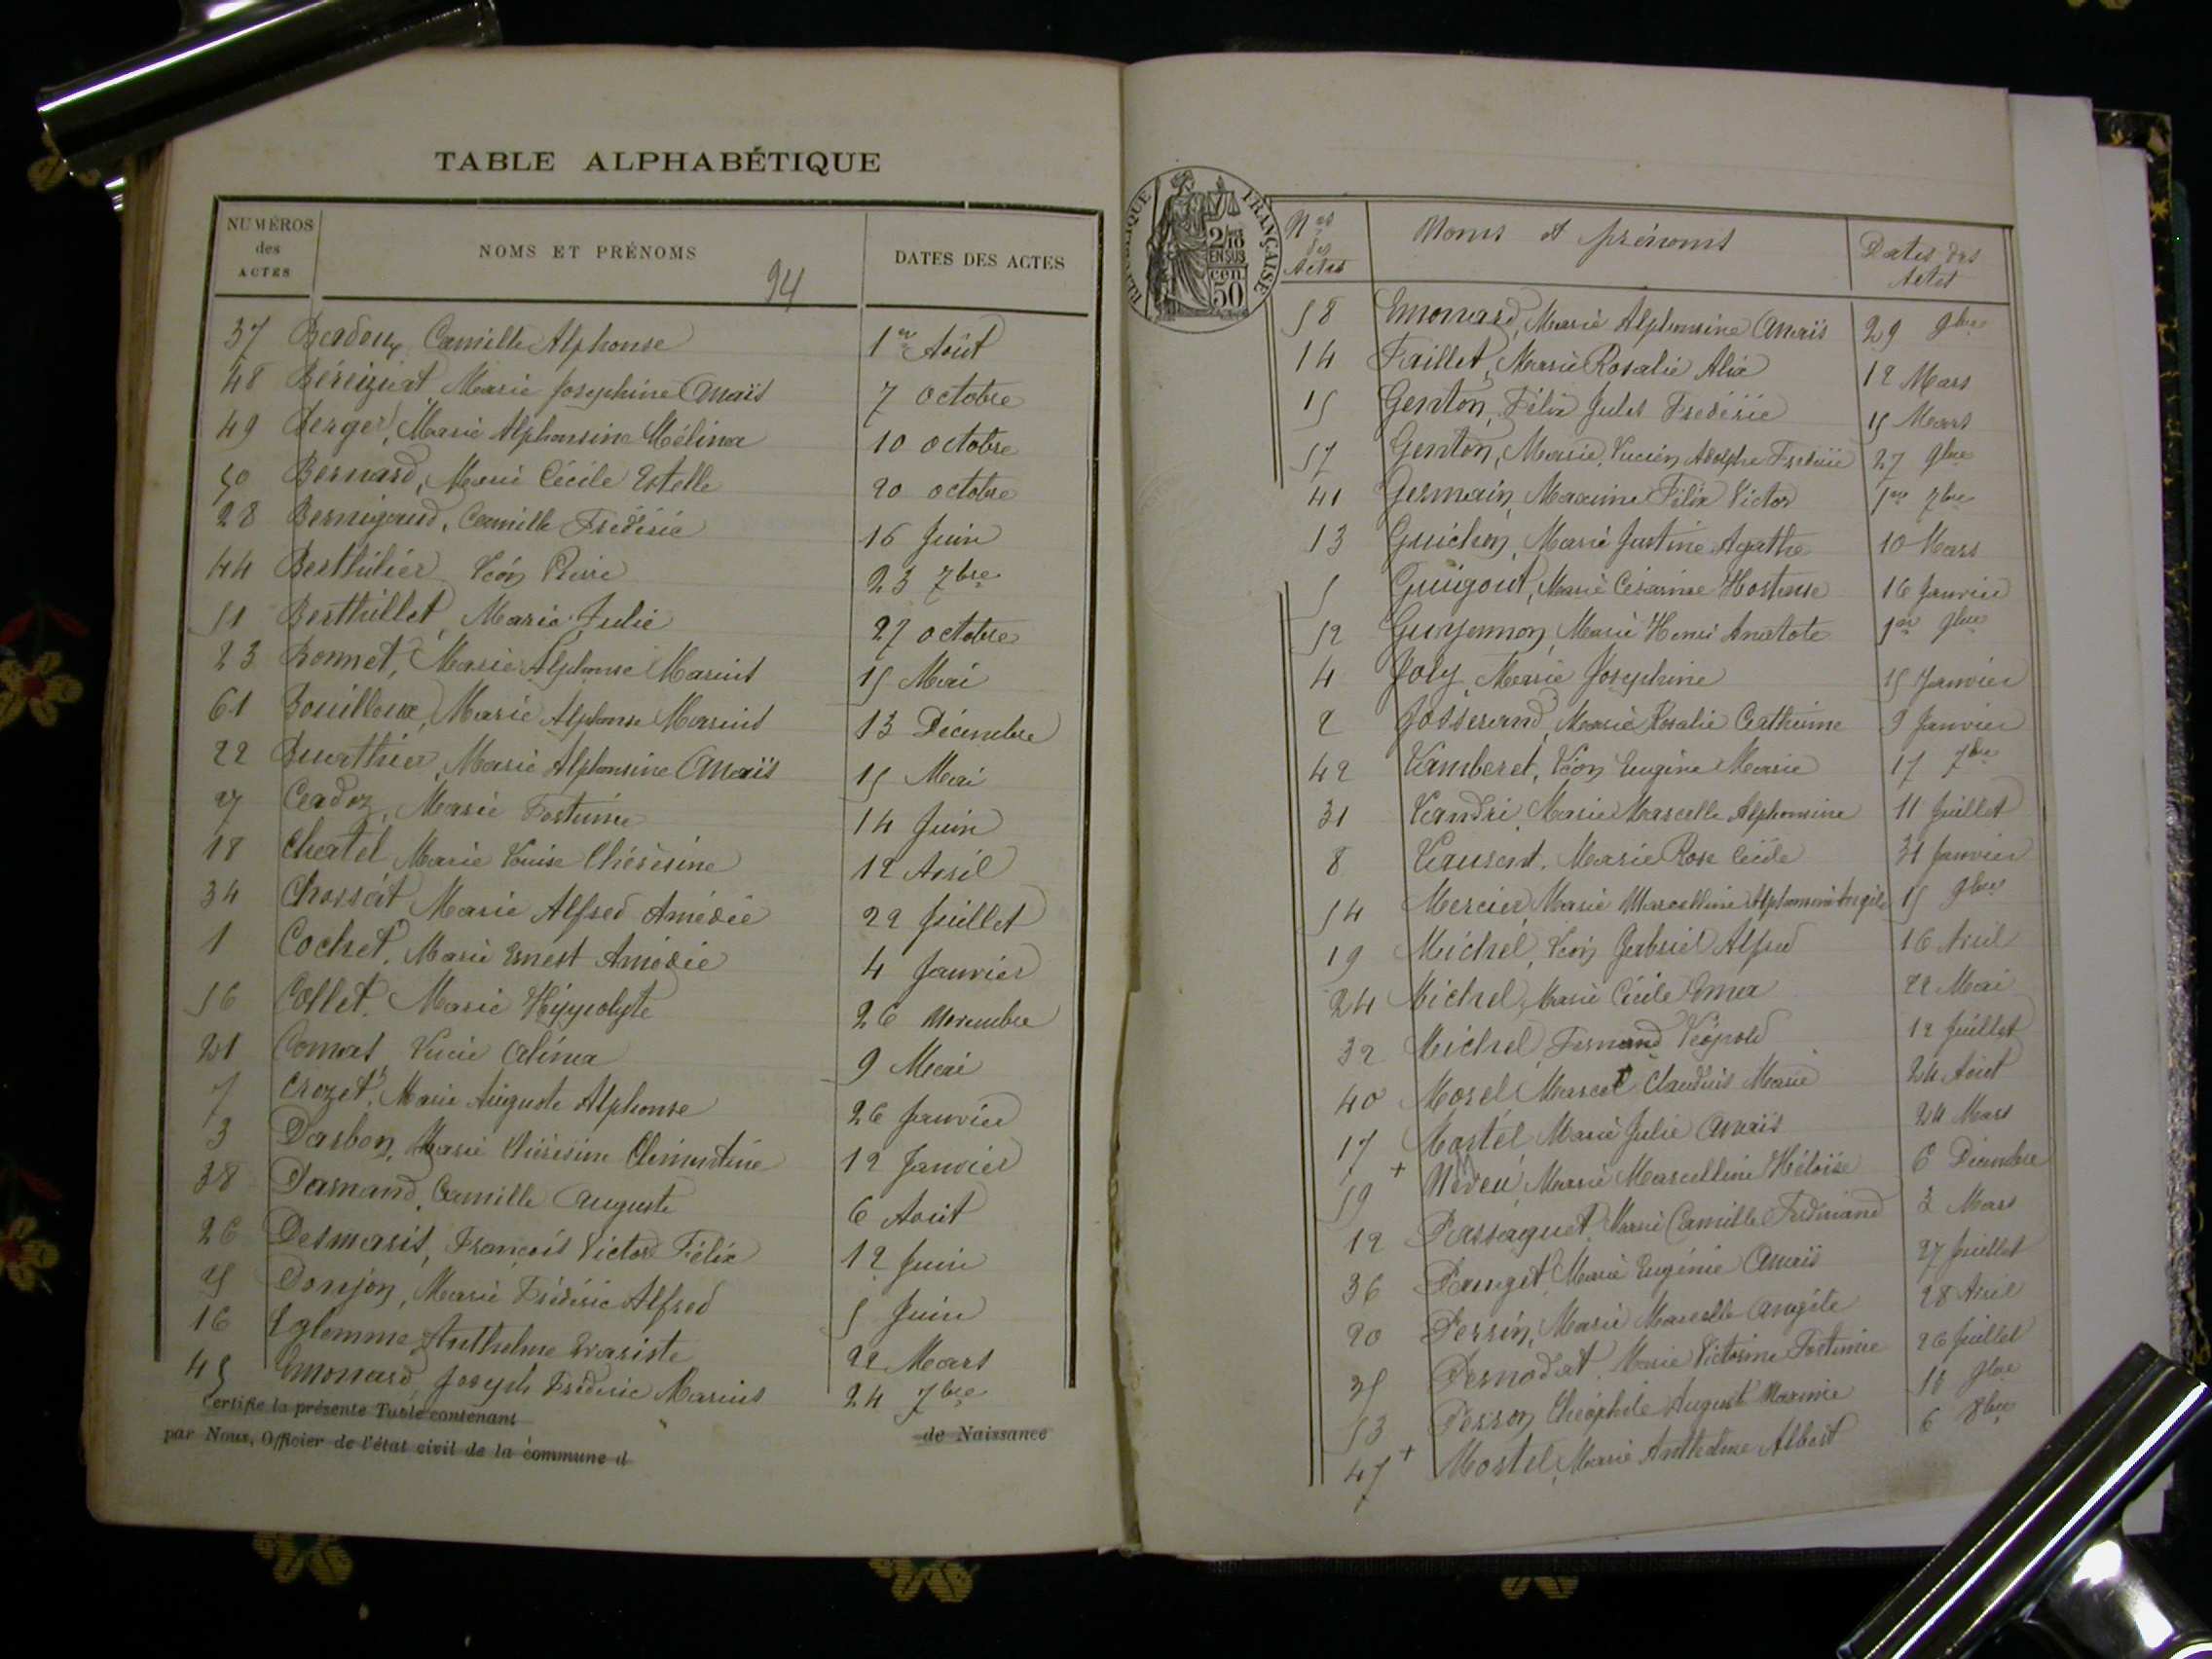 TABLE ALPHABÉTIQUE
NUMÉROS des ACTES NOMS ET PRÉNOMS 94 DATES DES ACTES
37 Badoux Camille Alphonse 1er Août
48 Béréiziat Marie Josephine Anaïs 7 octobre
49 Berger, Marie Alphonsine Mélina 10 octobre
50 Bernard, Marie Cécile Estelle 20 octobre
28 Bernigaud, Camille Frédéric 16 Juin
44 Berthilier Léon Pierre 23 7bre
51 Berthillet, Marie Julie 27 octobre
23 Bonnet, Marie Alphonse Marius 15 Mai
61 Bouilloux, Marie Alphonse Marius 13 Décembre
22 Buathier, Marie Alphonsine Anaïs 15 Mai
27 Cadoz, Marie Fortunée 14 Juin
18 Chatel Marie Louise Thérésine 12 Avril
34 Chossat Marie Alfred Amédée 22 Juillet
1 Cochet, Marie Ernest Amédée 4 Janvier
56 Collet, Marie Hippolyte 26 Novembre
21 Lucie Célina 9 Mai
7 Crozet, Marie Auguste Alphonse 26 Janvier
3 Darbon, Marie Thérésine Clémentine 12 Janvier
38 Darnand, Camille Auguste 6 Août
26 Desmaris, François Victor Félix 12 Juin
25 Donjon, Marie Frédéric Alfred 5 Juin
16 Eglemme Anthelme Evariste 22 Mars
45 Emonard, Joseph Frédéric Marius 24 7bre
Certifie la présente Table contenant de Naissance
par Nous, Officier de l'état civil de la commune d
RÉPUBLIQUE FRANÇAISE
2/10 EN SUS
50 cen
Nos des Actes Noms et prénoms Dates des Actes
58 Emonard, Marie Alphonsine Anaïs 29 9bre
14 Faillet, Marie Rosalie Alix 12 Mars
15 Genton, Félix Jules Frédéric 15 Mars
57 Genton, Marie Lucien Adolphe Frédéric 27 9bre
41 Germain, Maxime Félix Victor 1er 7bre
13 Guichon, Marie Justine Agathe 10 Mars
5 Guigout, Marie Césarine Hortense 16 Janvier
52 Guyennon, Marie Henri Anatole 1er 9bre
4 Joly, Marie Josephine 15 Janvier
2 Josserand, Marie Rosalie Catherine 9 Janvier
42 Lamberet, Léon Eugène Marie 17 7bre
31 Landri, Marie Marcelle Alphonsine 11 Juillet
8 Laurent, Marie Rose Cécile 31 Janvier
54 Mercier, Marie Marcelline Alphonsine Angèle 15 9bre
19 Michel, Léon Gabriel Alfred 16 Avril
24 Michel, Marie Cécile Emma 22 Mai
32 Michel Fernand Léopold 12 Juillet
40 Morel Marcel Claudius Marie 24 Août
17 Martel, Marie Julie Anaïs 24 Mars
59 + Neveu Marie Marcelline Héloïse 6 Décembre
12 Passaquet, Marie Camille Ferdinand 3 Mars
36 Pauget, Marie Eugénie Anaïs 27 Juillet
20 Perrin, Marie Marcelle Angèle 28 Avril
35 Pernodat, Marie Victorine Fortunée 26 Juillet
53 Perron, Théophile August Maxime 9bre
47 + Mostel, Marie Anthelme Albert 6 8bre